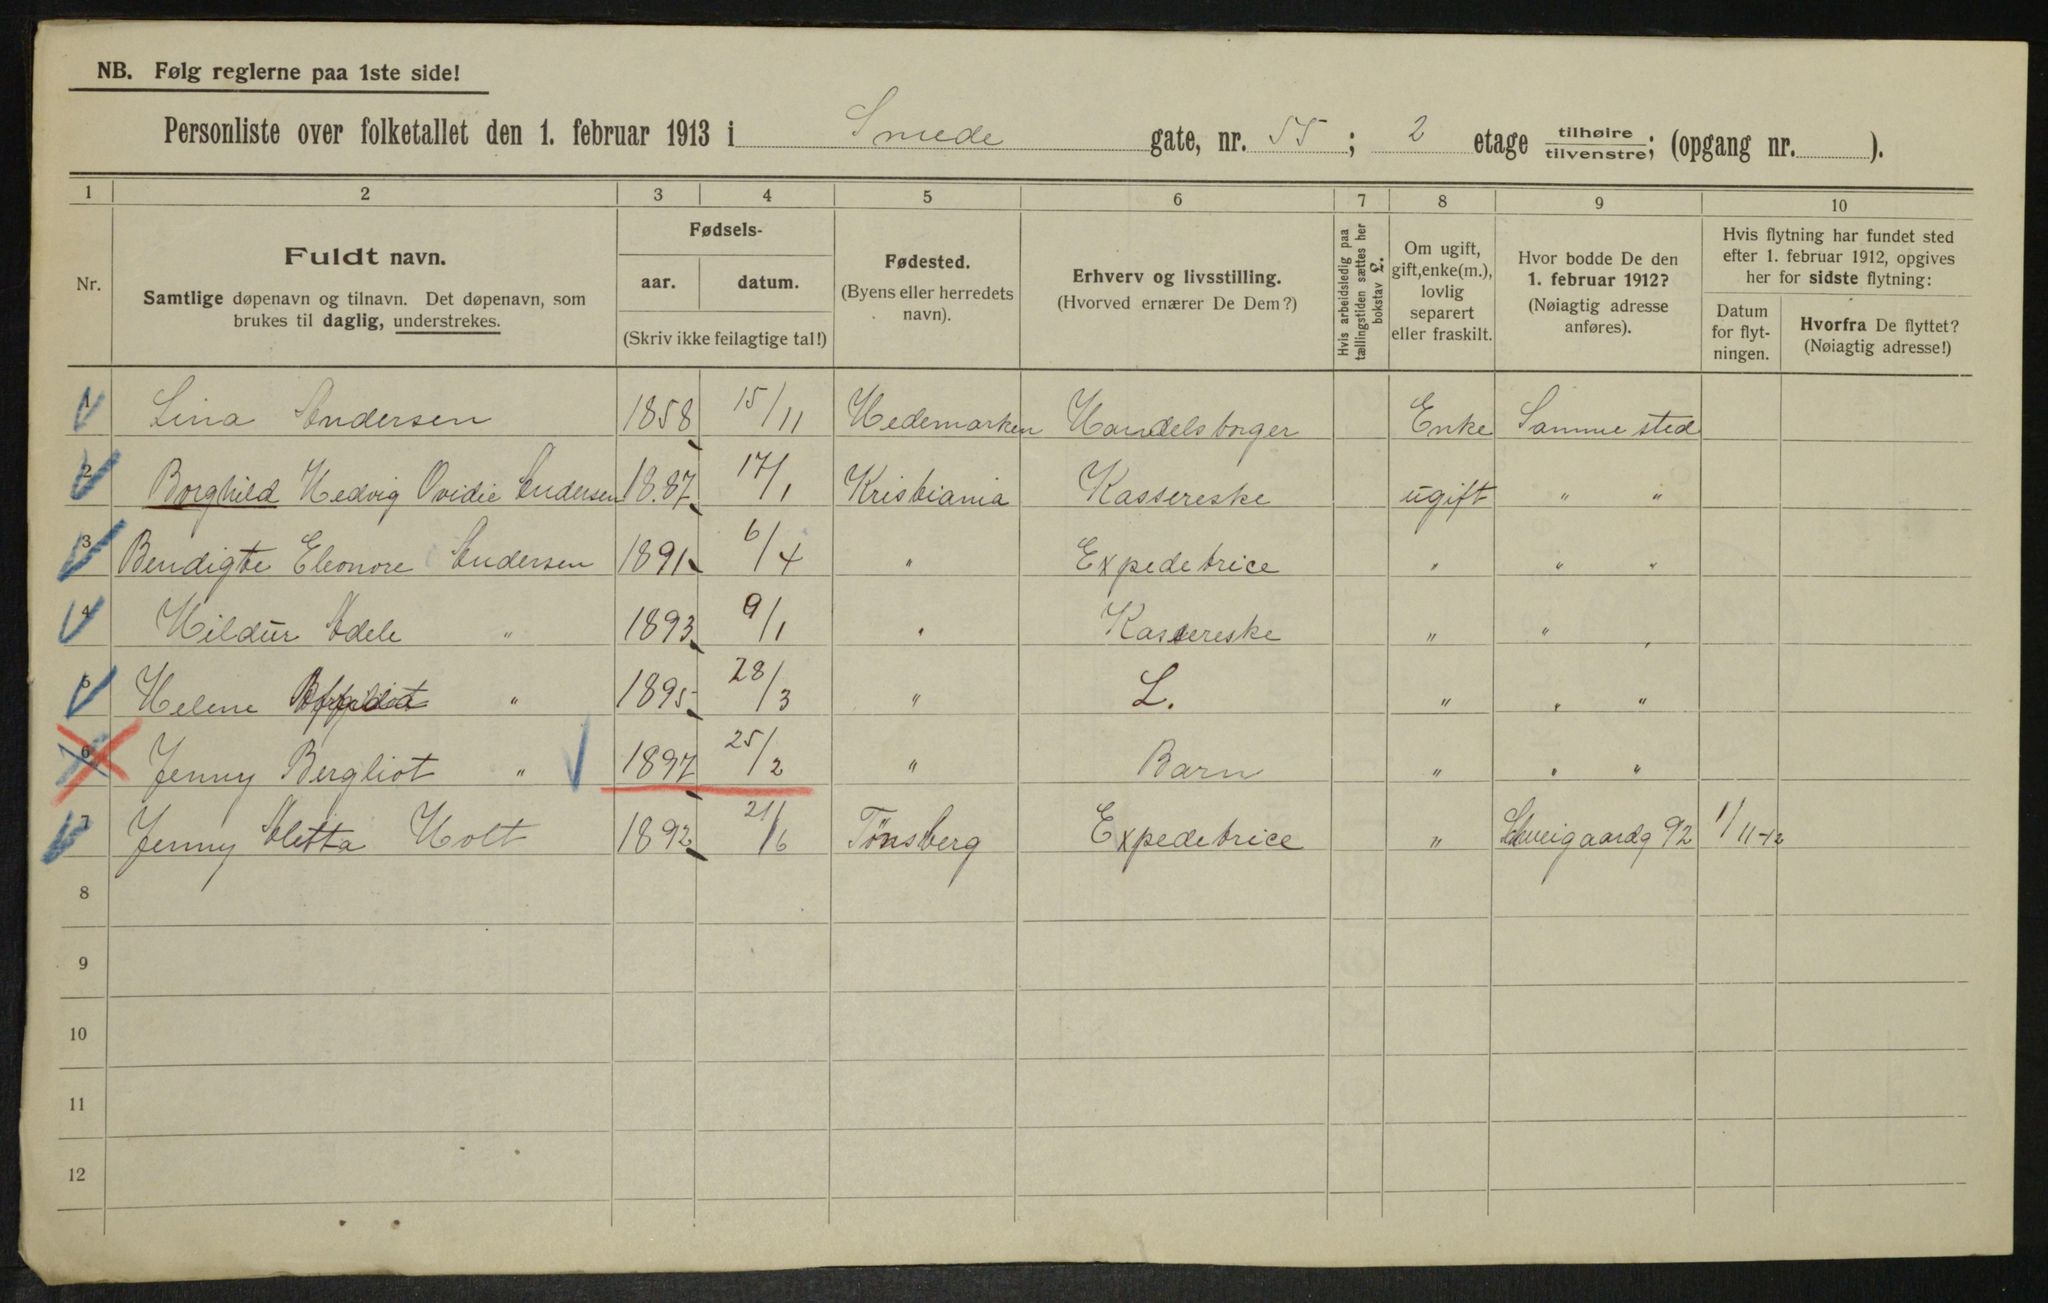 NB. Følg reglerne paa 1ste side!
Personliste over folketallet den 1. februar 1913 i Smede gate, nr. 55; 2 etage tilhøire/tilvenstre; (opgang nr. ).
1 2 3 4 5 6 7 8 9 10
Nr.
Fuldt navn.
Samtlige døpenavn og tilnavn. Det døpenavn, som
brukes til daglig, understrekes.
Fødsels-
aar. datum.
(Skriv ikke feilagtige tal!)
Fødested.
(Byens eller herredets
navn).
Erhverv og livsstilling.
(Hvorved ernærer De Dem?)
Hvis arbeidsledig paa
tællingstiden sættes her
bokstav L.
Om ugift,
gift, enke(m.),
lovlig
separert
eller fraskilt.
Hvor bodde De den
1. februar 1912?
(Nøiagtig adresse
anføres).
Hvis flytning har fundet sted
efter 1. februar 1912, opgives
her for sidste flytning:
Datum
for flyt-
ningen.
Hvorfra De flyttet?
(Nøiagtig adresse!)
1 Lina Andersen 1858 15/11 Hedemarken Handelsborger Enke Samme sted
2 Borghild Hedvig Ovidie Andersen 18.87 17/1 Kristiania Kassereske ugift " "
3 Bendigte Eleonore Andersen 1891 6/4 " Expedetrice " " "
4 Hildur Adele " 1893 9/1 " Kassereske " " "
5 Helene " 1895 28/3 " L. " " "
6 Jenny Bergliot " 1897 25/2 " Barn " " "
7 Jenny Aletta Holt 1892 21/6 Tönsberg Expedetrice " Schweigaardg 92 1/11-12
8
9
10
11
12